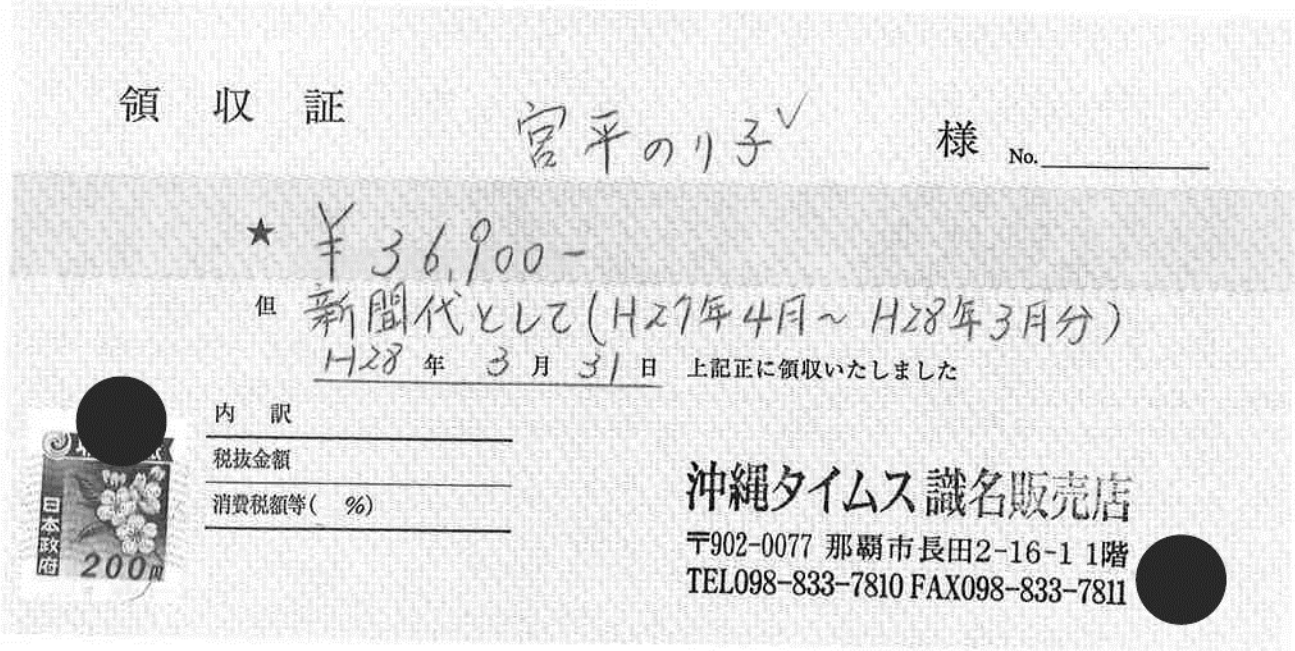 領収証 宮平のり子 様 No.
★ ¥36,900-
但 新聞代として(H27年4月～H28年3月分)
H28年3月31日 上記正に領収いたしました
内訳
税抜金額
消費税額等( %)
日本政府
200円
沖縄タイムス 識名販売店
〒902-0077 那覇市長田2-16-1 1階
TEL098-833-7810 FAX098-833-7811